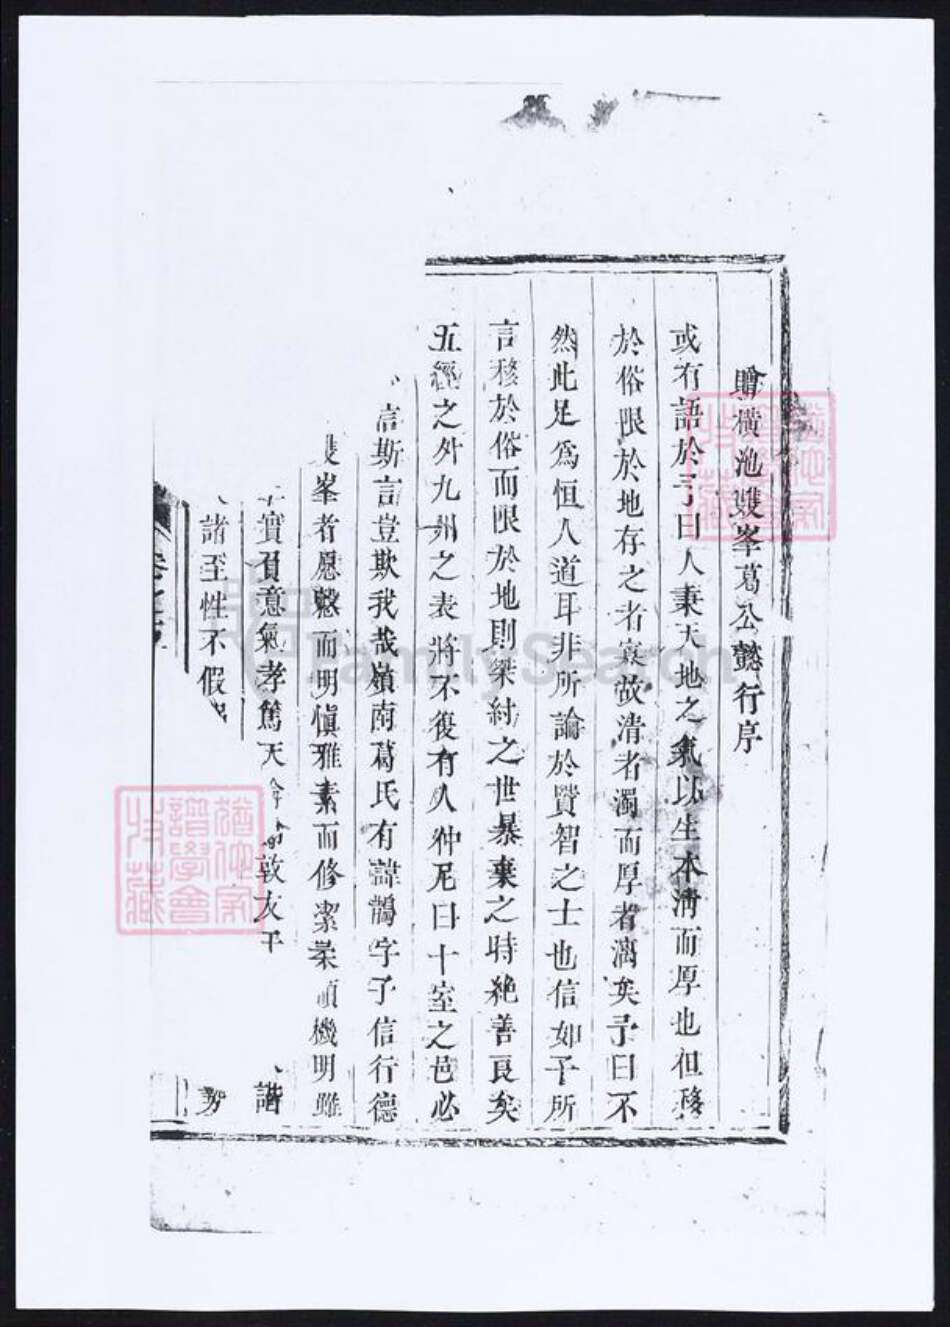 贈橫池雙峯葛公懿行序
或有語於予曰人秉天地之氣以生本淸而厚也但移
於俗限於地存之者寡故清者濁而厚者漓矣予曰不
然此足爲恒人道耳非所論於賢智之士也信如予所
言移於俗而限於地則桀紂之世暴棄之時絶善良矣
五經之外九州之表將不復有人仲尼曰十室之邑必
言斯言豈欺我哉嶺南葛氏有諱鵲字子信行德
峯者愿慤而明愼雅素而修潔機明雖
實負意氣孝篤天敦友于諧
諸至性不假
FamilySearch
譜學會